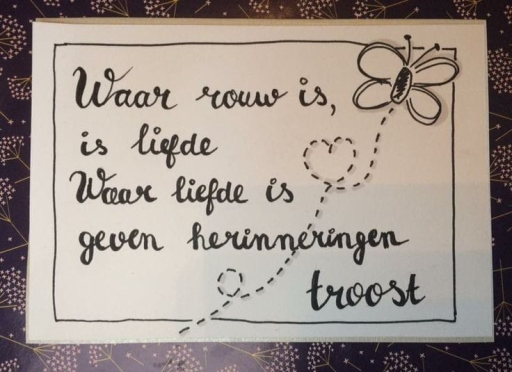 Waar rouw is,
is liefde
Waar liefde is
geven herinneringen
troost